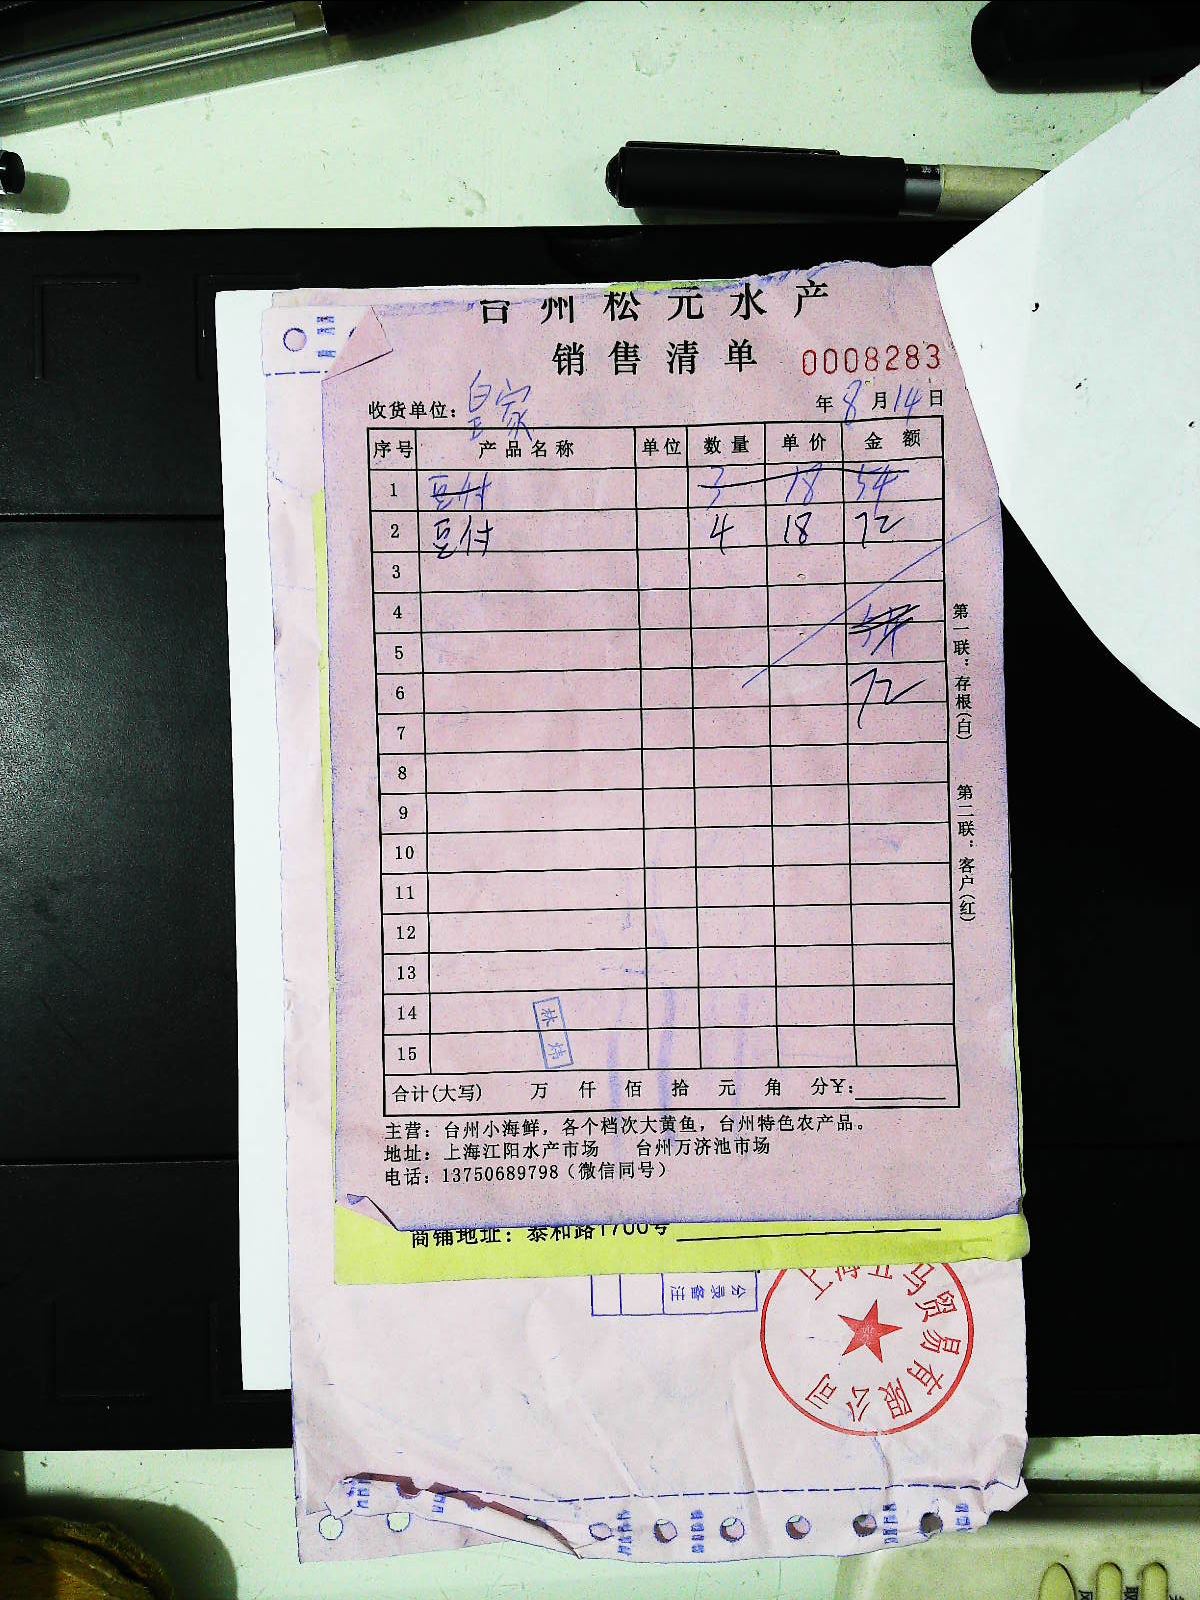 台州松元水产
销售清单
0008283
收货单位：皇家
年8月14日
序号 产品名称 单位 数量 单价 金额
1 豆付 3 18 54
2 豆付 4 18 72
3
4
54
5
6 72
7
8
9
10
11
12
13
14
15
林炜
合计(大写) 万 仟 佰 拾 元 角 分¥:
主营：台州小海鲜，各个档次大黄鱼，台州特色农产品。
地址：上海江阳水产市场 台州万济池市场
电话：13750689798（微信同号）
第一联：存根(白)
第二联：客户(红)
商铺地址：泰和路1700号